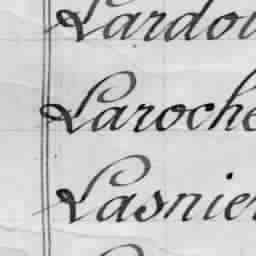 Lardou
Laroche
Lasnier